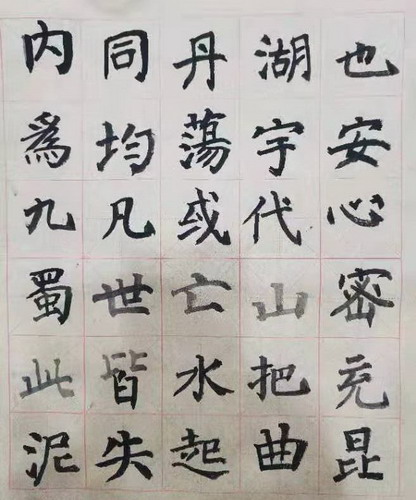 也安心密充昆
湖宇代山把曲
丹蕩或亡水起
同均凡世皆失
内爲九蜀此泥